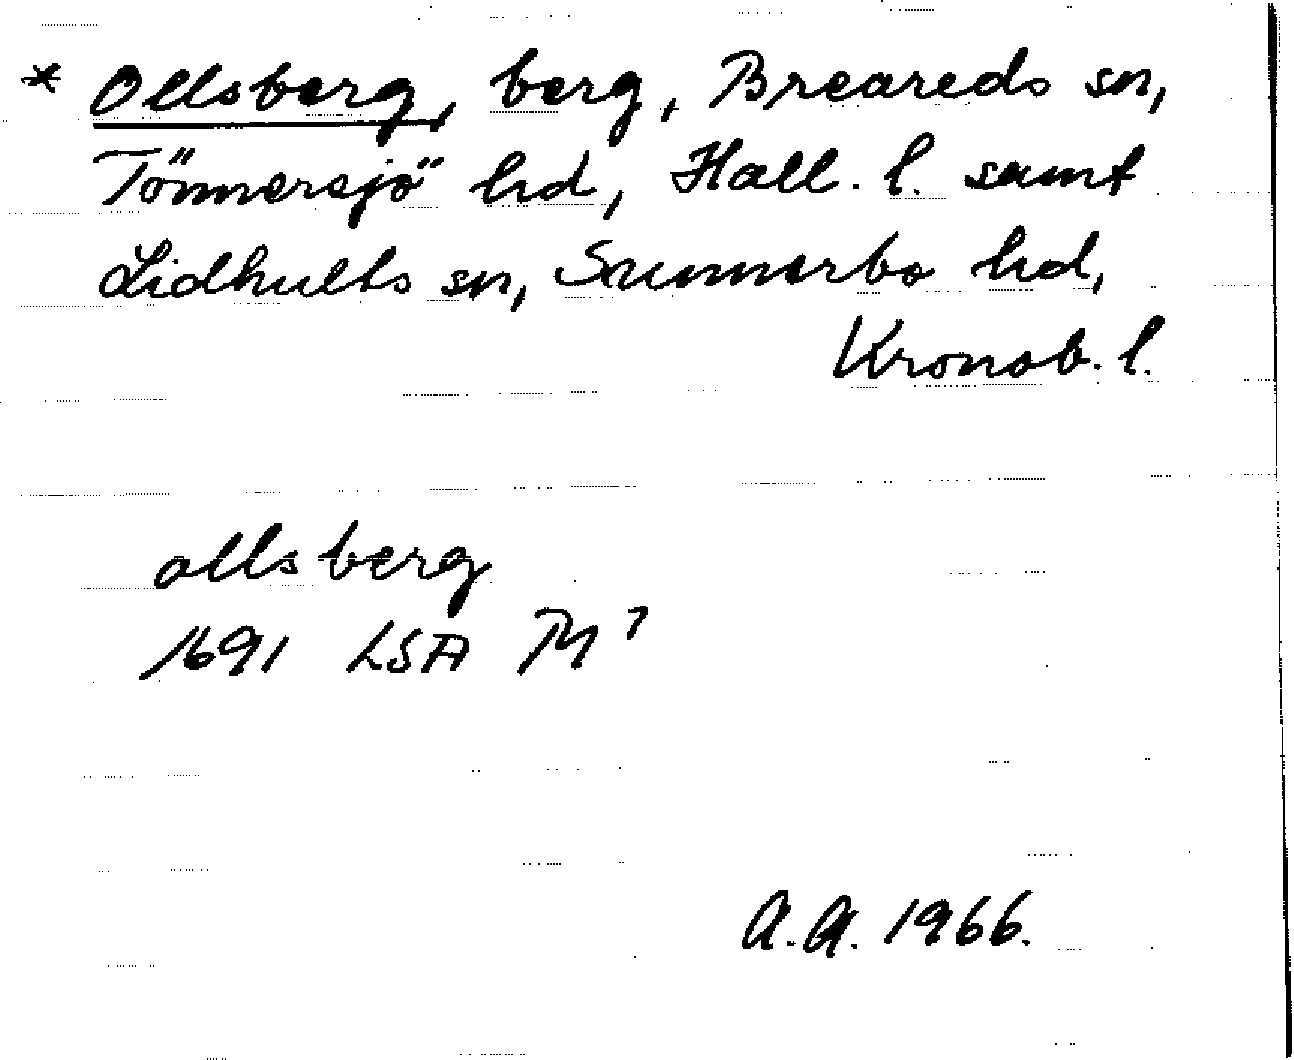 * Ollsberg, berg, Breareds sn,
Tönnersjö hd, Hall. l. samt
Lidhults sn, Sunnerbo hd,
Kronob. l.
ollsberg
1691 LSA M⁷
A.A. 1966.